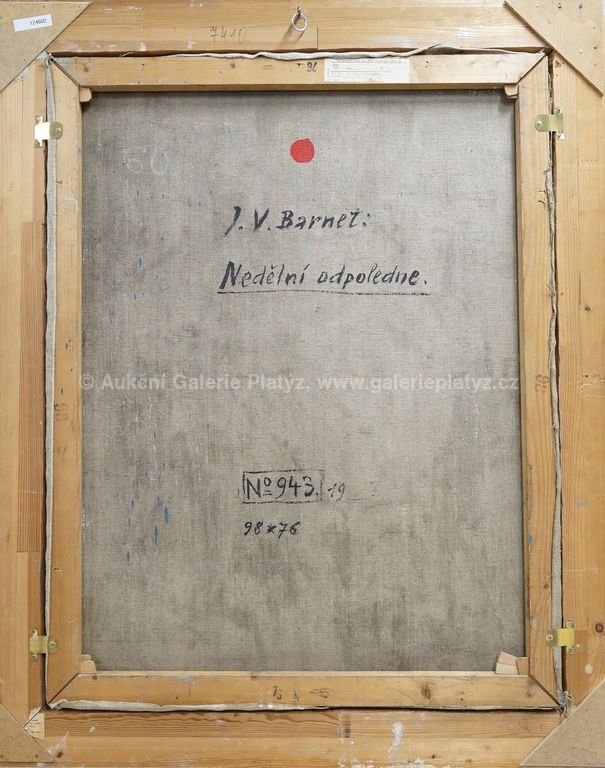 124602
7410
76
60
J. V. Barnet:
Nedělní odpoledne.
© Aukční Galerie Platýz, www.galerieplatyz.cz
98
No 943. 19
98 x 76